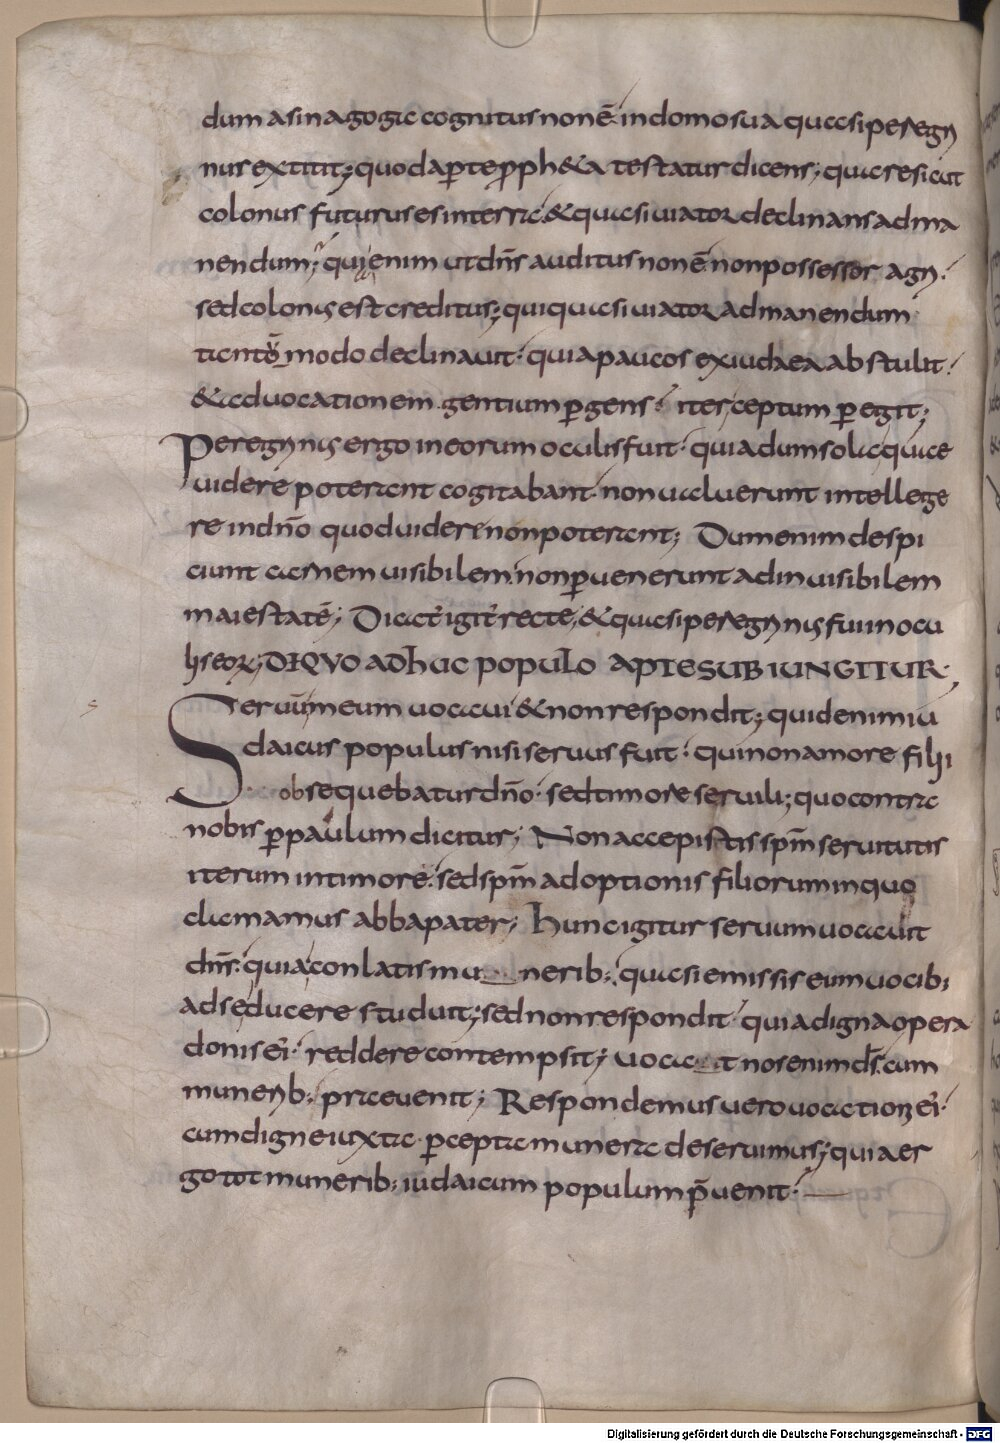 dum a sinagoga cognitus non ē in domo sua quasi peregri
nus extitit; quod apte ꝓpheta testatur dicens; quare sicut
colonus futurus es in terra & quasi uiator declinans ad ma
nendum; qui enim ut dn̄s auditus non ē non possessor agri
sed colonus est creditus; qui quasi uiator ad manendum
tantō modo declinauit quia paucos ex iudaea abstulit
& ad uocationem gentium ꝑgens iter ceptum ꝑegit;
Peregrinus ergo in eorum oculis fuit quia dum sola quae
uidere poterant cogitabant non ualuerunt intellege
re in dn̄o quod uidere non poterant; Dum enim despi
ciunt carnem uisibilem non ꝑuenerunt ad inuisibilem
maiestatē; Dicat̄ igit̄ recte & quasi peregrinus fui in ocu
lis eoꝝ; DE QVO ADHUC POPULO APTE SUBIUNGITUR
Seruūm meum uocaui & non respondit; quid enim iu
daicus populus nisi seruus fuit qui non amore filii
obsequebatur dn̄o sed timore seruili; quo contra
nobis ꝑ paulum dicitur; Non accepistis sp̄m seruitutis
iterum in timore sed sp̄m adoptionis filiorum in quo
clamamus abba pater; Hunc igitur seruum uocauit
dn̄s quia conlatis mu nerib; quasi emissis eum uocibi
ad se ducere studuit; sed non respondit quia digna opera
donis ei reddere contempsit; uocat nos enim ds̄ cum
munerib; praeuenit; Respondemus uero uocationi ei
cum digne iuxta ꝑcepta munera deseruimus; quia er
go tot munerib; iudaicum populum p̄uenit
Digitalisierung gefördert durch die Deutsche Forschungsgemeinschaft - DFG